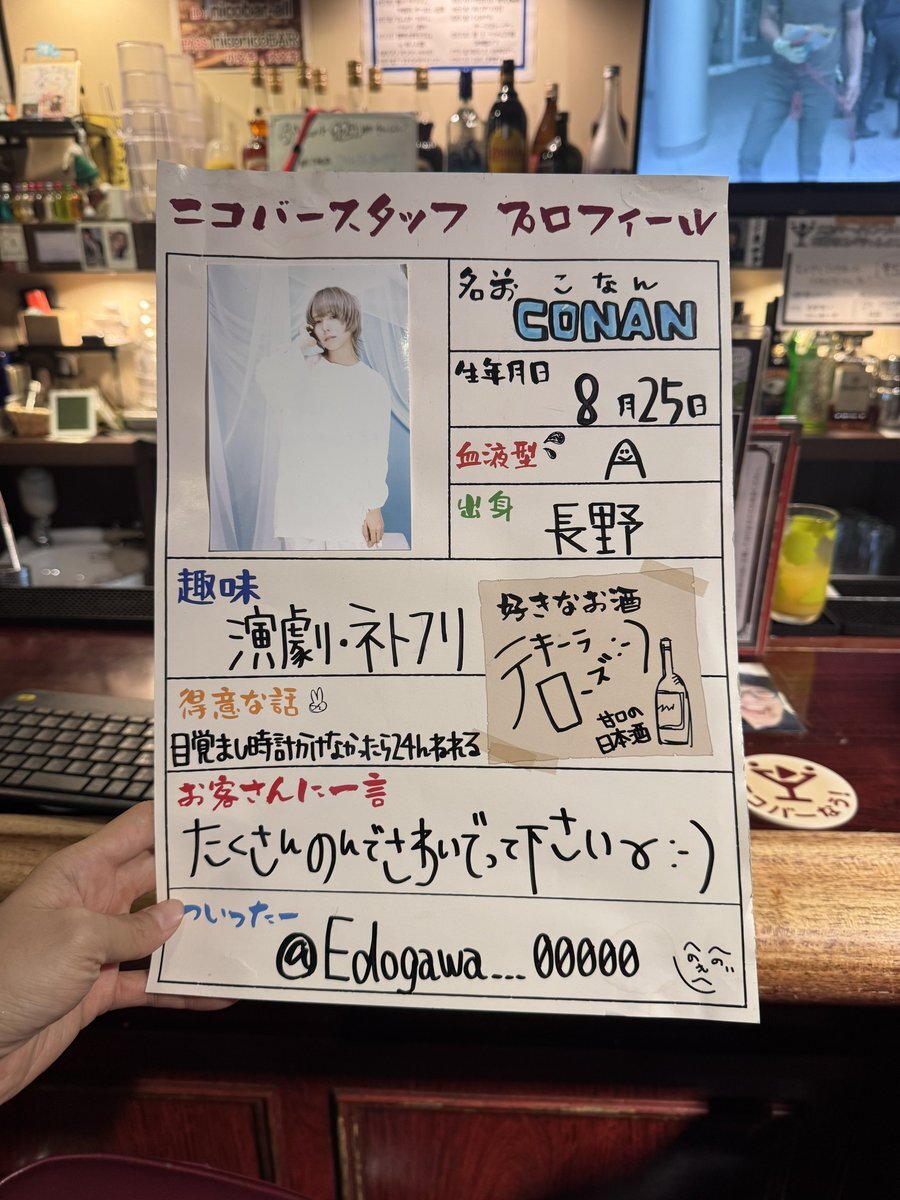 nicobar-ali
ニコバースタッフ プロフィール
名前 こなん
CONAN
生年月日 8月25日
血液型 A
出身 長野
趣味
演劇・ネトフリ
好きなお酒
テキーラ :-)
ローズ
甘口の
日本酒
得意な話
目覚まし時計かけなかったら24hねれる
お客さんに一言
たくさんのんでさわいでって下さいɤ :-)
ついったー
@Edogawa___00000
コバーなう!